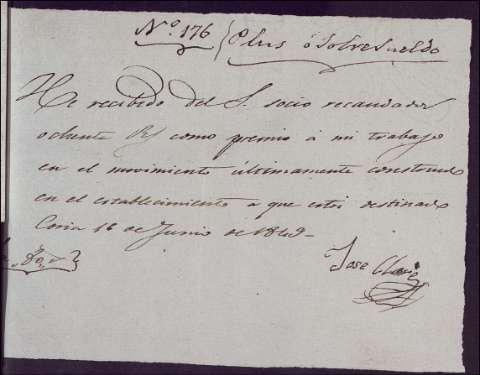 Nº. 176 { Plus ó Sobresueldo
He recibido del S. socio recaudador
ochenta Rs como premio á mi trabajo
en el movimiento últimamente construido
en el establecimiento a que estoi destinado
Coria 16 de Junio de 1849
Son 80 r.
Jose